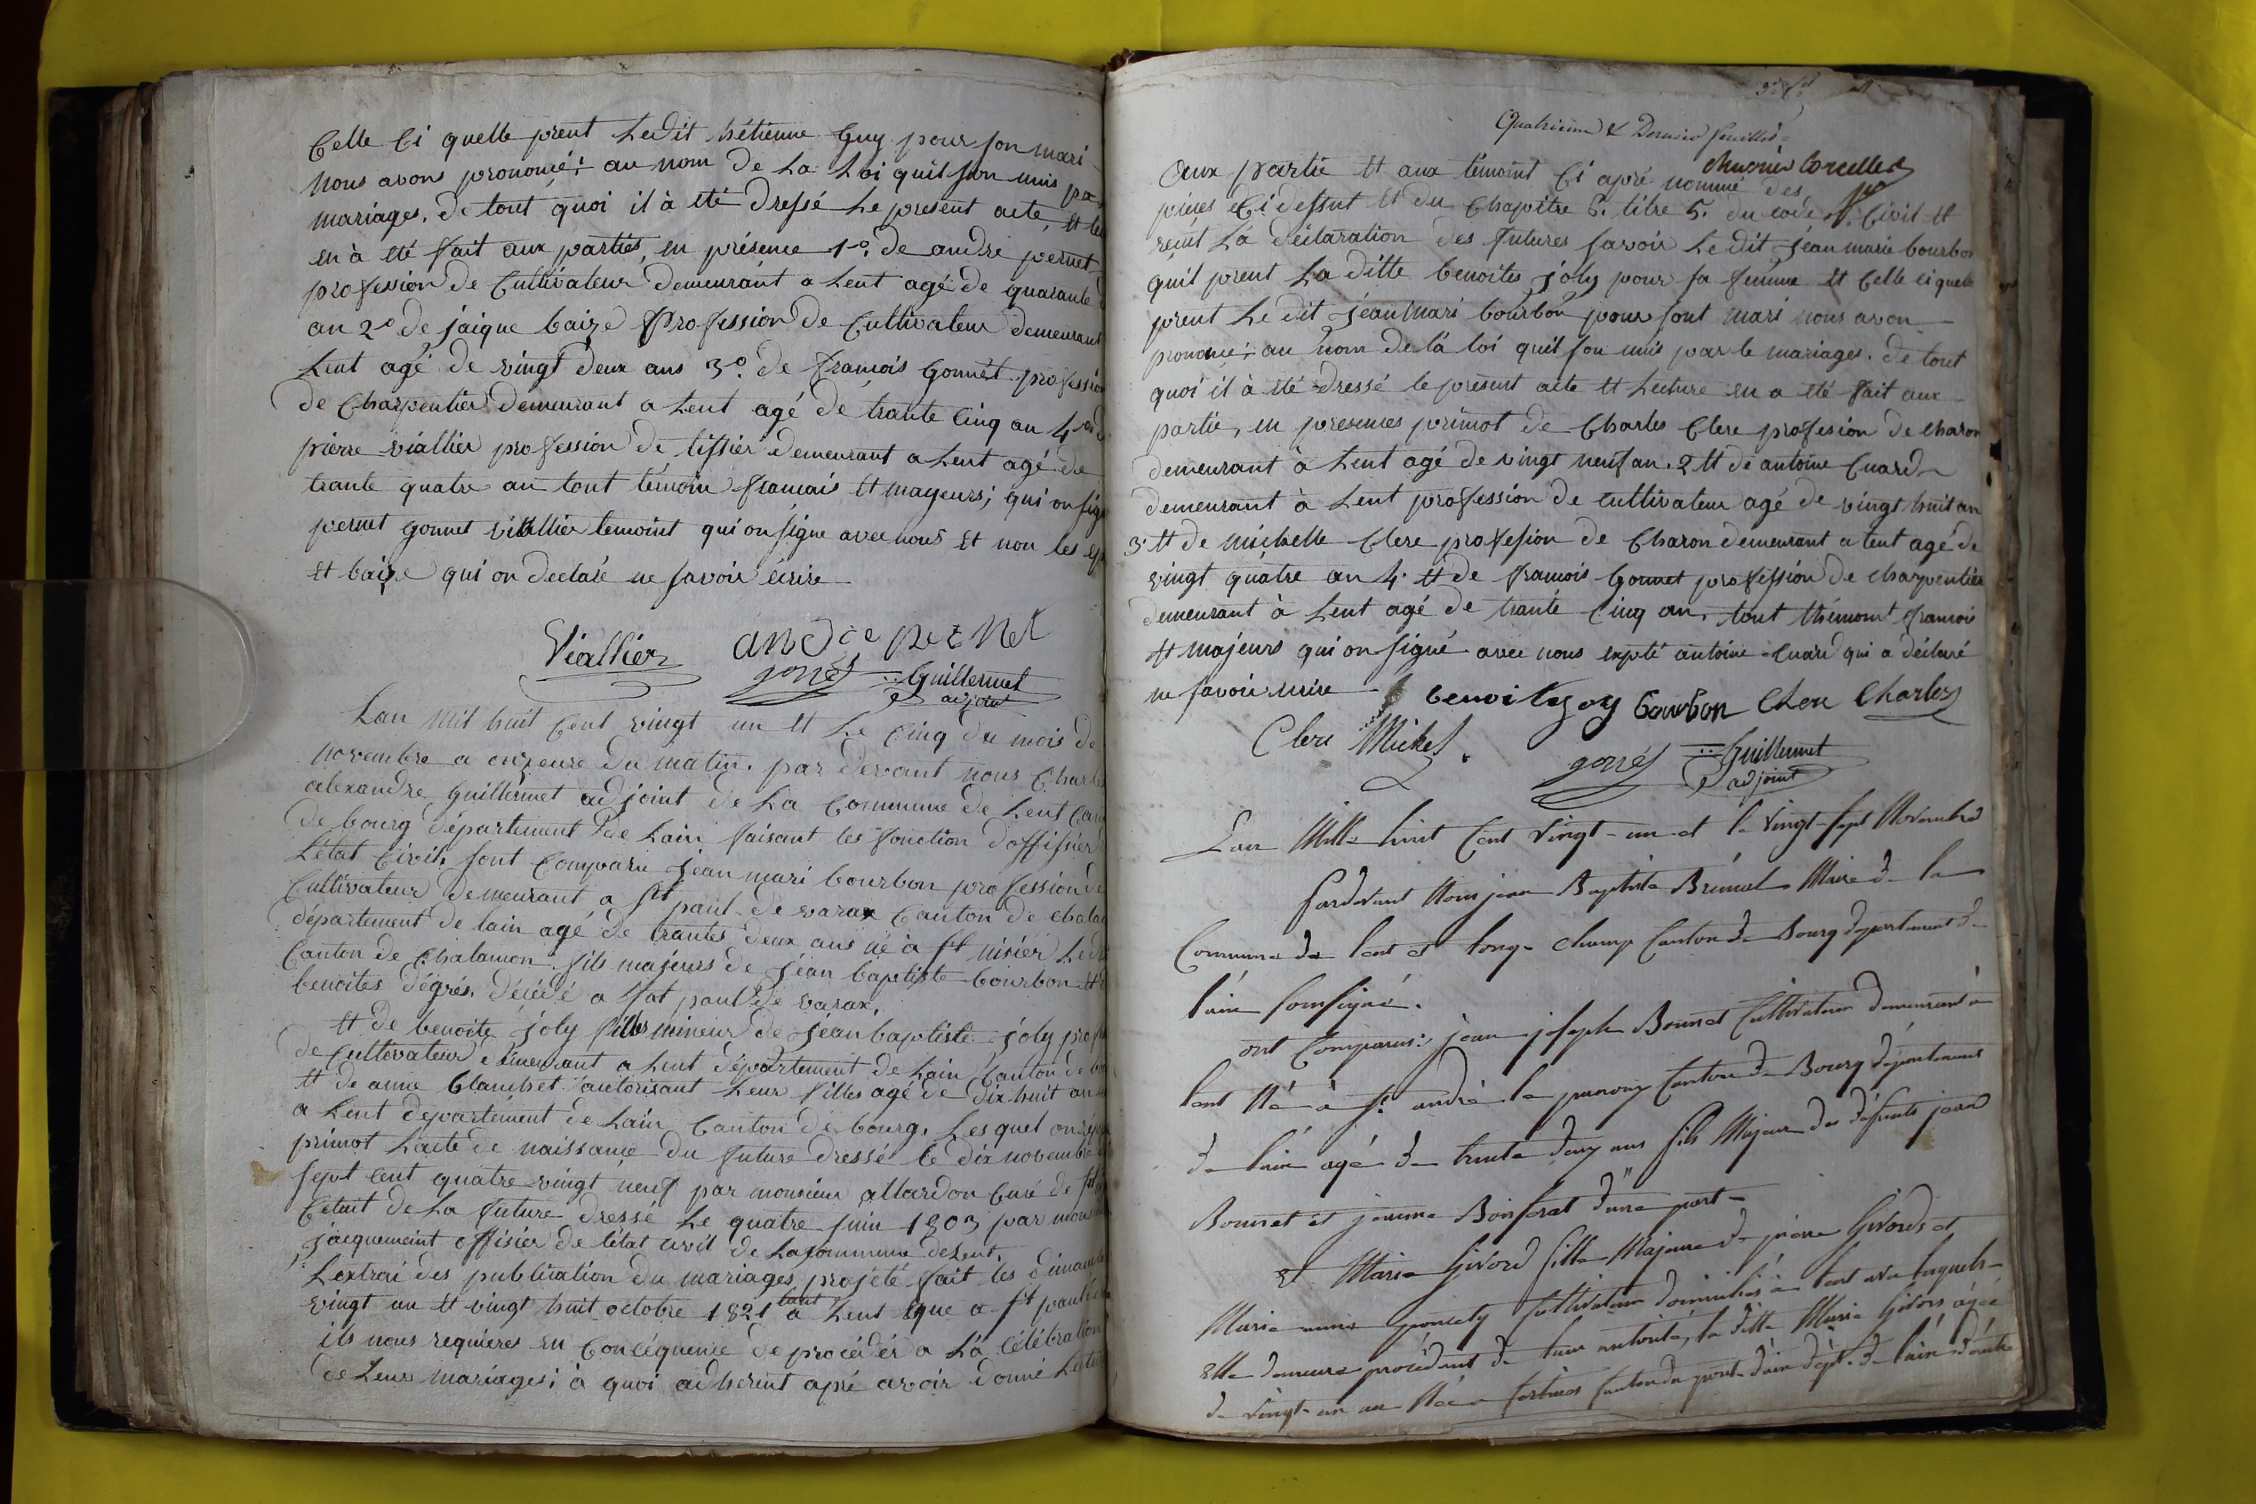 Celle Ci quelle prent Ledit hétienne Guy pour son mari
Nous avons prononcé: au nom de La Loi quil son unis pa
mariages. de tout quoi il à été dressé Le present acte, et le
en à été fait aux parties, en présence 1o. de andré pernet
profession de Cultivateur demeurant a Lent agé de quarante
an 2o de jaique baize profession de Cultivateur demeurant
Lent agé de vingt deux ans 3o. de francois Gonnet profession
de Charpentier demeurant a Lent agé de trante Cinq an 4
pierre viallier profession de tissier demeurant a Lent agé de
trante quatre an tout témoin francais et mayeurs; qui on sig
pernet gonnet viallier temoint qui on signe avec nous et non les
et baize qui on declaré ne savoir écrire
Viallier andre pernet
gonet Guillermet
adjoint
Lan Mil huit Cent vingt un et Le Cinq du mois de
Novembre a onzeure du matin. par devant nous Charle
alexandre Guillermet adjoint de La Commune de Lent Can
de bourg département de Lain faisant les fonction doffisier
Létat Civil, sont Comparu jean mari bourbon profession de
Cultivateur demeurant a st paul de varax Canton de chala
département de lain agé de trantes deux ans né à st nisier Led
Canton de Chalamon. fils majeurs de jéan baptiste bourbon et
benoites dégrés. décédé a sat paul de varax,
et de benoite joly filles mineur de jéan baptiste joly prof
de Cultivateur demeurant a Lent département de Lain Canton de
et de anne blanchet autorisant Leur filles agé de dix huit an
a Lent département de Lain Canton de bourg. Lesquel on
primot Lacte de naissance du future dressé le dix novembre
sept cent quatre vingt neuf par monsieur allardon Curé de st
Celuit de La future dressé Le quatre juin 1803 par mon
jacquemeint offisier de létat civil de La commune de Lent,
Lextrai des publication du mariages projété fait les dimanche
vingt un et vingt huit octobre 1821 tant à Lent que a st paul
ils nous requieres en Conséquence de procéder a La Célébration
de Leur mariages; à quoi adhérent apré avoir donné Lectu
Quatrieme & Dernier feuillet
chusnier Corcelles
aux partie et aux témoint Ci apré nommé des
pieces Ci dessut et du Chapitre 6. titre 5. du code Civil et
recut La déclaration des futures savoir Le dit jéan marie bourbon
quil prent La ditte benoites joly pour sa femme et Celle ci quelle
prent Le dit jéan mari bourbon pour sont mari nous avon
prononcé: au nom de la loi quil son unis par le mariages. de tout
quoi il à été dressé le présent acte et Lecture en a été fait aux
partie, en presences primot de Charles Clere profesion de charon
demeurant à Lent agé de vingt neuf an. 2 et de antoine Cuard
demeurant à Lent profession de cultivateur agé de vingt huit an
3. et de michelle Clere profesion de Charon demeurant a Lent agé de
vingt quatre an 4. et de francois Gonnet profession de charpentier
demeurant à Lent agé de trante Cinq an, tout thémoint francois
et majeurs qui on signé avec nous expté antoine Cuard qui a déclaré
ne savoir écrire
benoite joly bourbon Clere Charles
Clere Michel. gonet Guillermet
adjoint
L'an Mille huit Cent vingt-un et le vingt-sept Novembre
Pardevant Nous jean Baptiste Brunet Maire de la
Commune de lent et longchamp Canton de Bourg département de
l'ain soussigné.
ont Comparus: jean joseph Bonnet Cultivateur demeurant à
lent Né à st. andré le panoux Canton de Bourg département
de l'ain agé de trente deux ans fils Majeur des défunts jean
Bonnet et jeanne Boisserat d'une part
et Marie Givord fille Majeure de pierre Givords et
Marie anne poncety Cultivateur domiciliés à lent avec lesquels
Elle demeure procédant de leur autorité, la ditte Marie Givord agée
de vingt-un an Née à tertraos Canton du pont-d'ain dépt. de l'ain d'autre